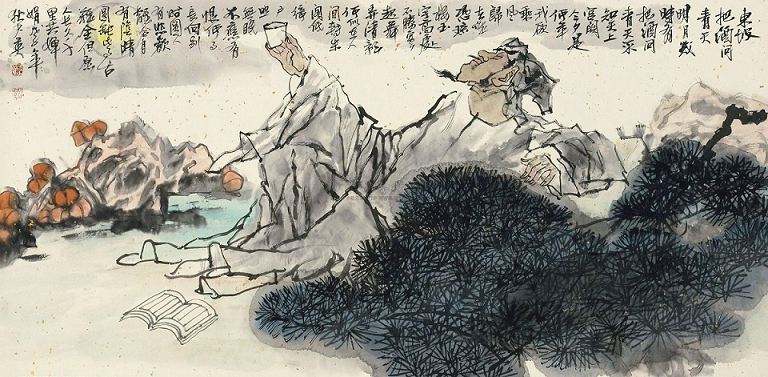 東坡
把酒问
青天
明月幾
時有
把酒问
青天不
知天上
宫阙
今夕是
何年
我欲
乘
风
歸
去唯
恐瓊
樓玉
宇高處
不勝寒
起舞
弄清影
何似在人
间轉朱
阁低
绮
户
照
无眠
不應有
恨何事
長向别
时圆人
有悲歡
離合月
有阴晴
圆缺此事古
難全但愿
人长久千
里共婵
娟